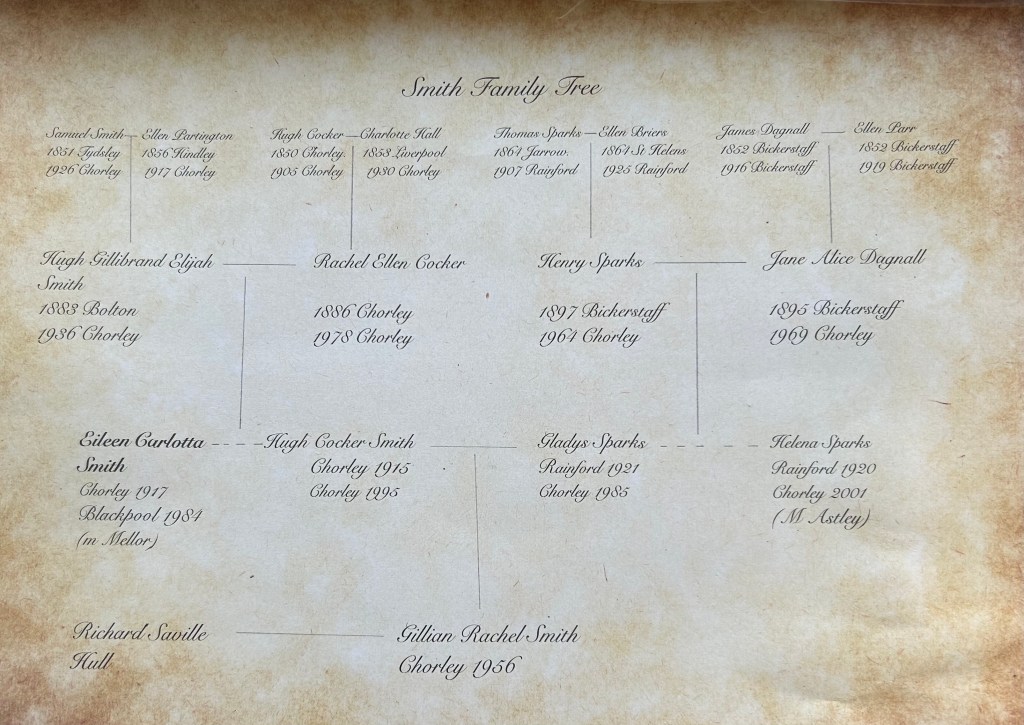 Smith Family Tree
Samuel Smith
1851 Tydsley
1926 Chorley
Ellen Partington
1856 Hindley
1917 Chorley
Hugh Cocker
1850 Chorley.
1905 Chorley
Charlotte Hall
1853 Liverpool
1930 Chorley
Thomas Sparks
1864 Jarrow.
1907 Rainford
Ellen Briers
1864 St Helens
1925 Rainford
James Dagnall
1852 Bickerstaff
1916 Bickerstaff
Ellen Parr
1852 Bickerstaff
1919 Bickerstaff
Hugh Gillibrand Elijah
Smith
1883 Bolton
1936 Chorley
Rachel Ellen Cocker
1886 Chorley
1978 Chorley
Henry Sparks
1897 Bickerstaff
1964 Chorley
Jane Alice Dagnall
1895 Bickerstaff
1969 Chorley
Eileen Carlotta
Smith
Chorley 1917
Blackpool 1984
(m Mellor)
Hugh Cocker Smith
Chorley 1915
Chorley 1995
Gladys Sparks
Rainford 1921
Chorley 1985
Helena Sparks
Rainford 1920
Chorley 2001
(M Astley)
Richard Saville
Hull
Gillian Rachel Smith
Chorley 1956